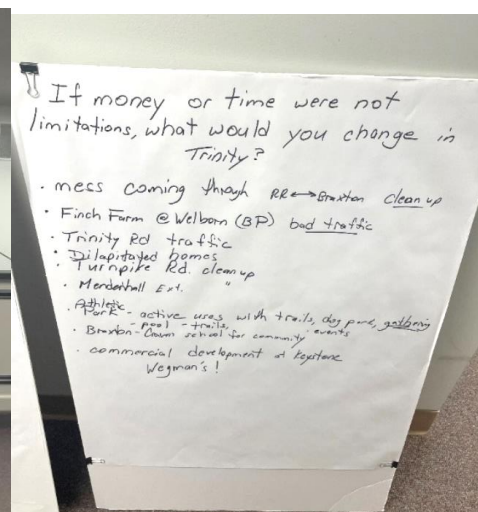 If money or time were not
limitations, what would you change in
Trinity?
· mess coming through RR↔Braxton clean up
· Finch Farm @ Welborn (BP) bad traffic
· Trinity Rd traffic
· Dilapitated homes
· Turnpike Rd. clean up
· Mendenhall Ext. "
· Athletic
Park - active uses with trails, dog park, gathering
- pool - trails, events
· Braxton-Craven school for community
· commercial development at Keystone
Wegman's!